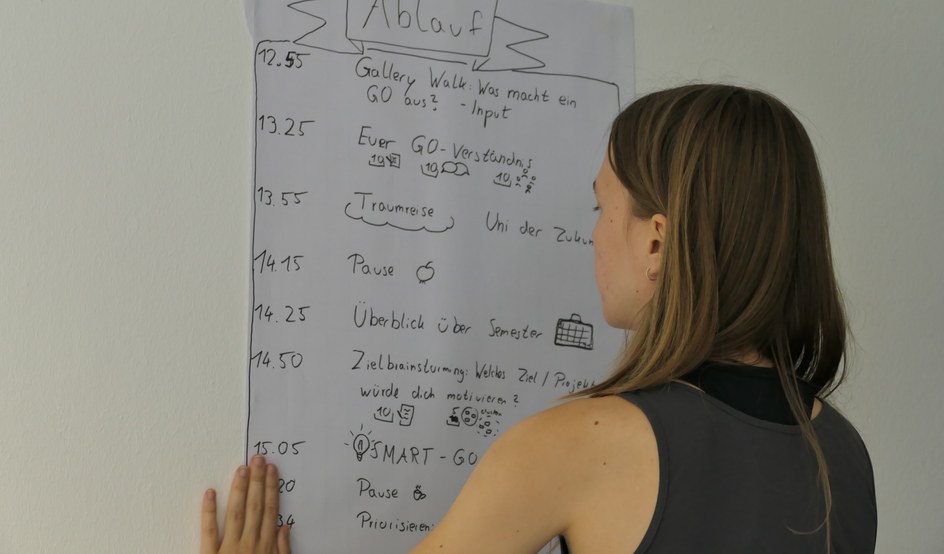 Ablauf
12.55 Gallery Walk: Was macht ein
GO aus? - Input
13.25 Euer GO-Verständnis
10 10 10
13.55 Traumreise Uni der
14.15 Pause
14.25 Überblick über Semester
14.50 Zielbrainsturming: Welches Ziel / Projekt
würde dich motivieren?
10 5
15.05 SMART - GO
20 Pause
34 Priorisieren